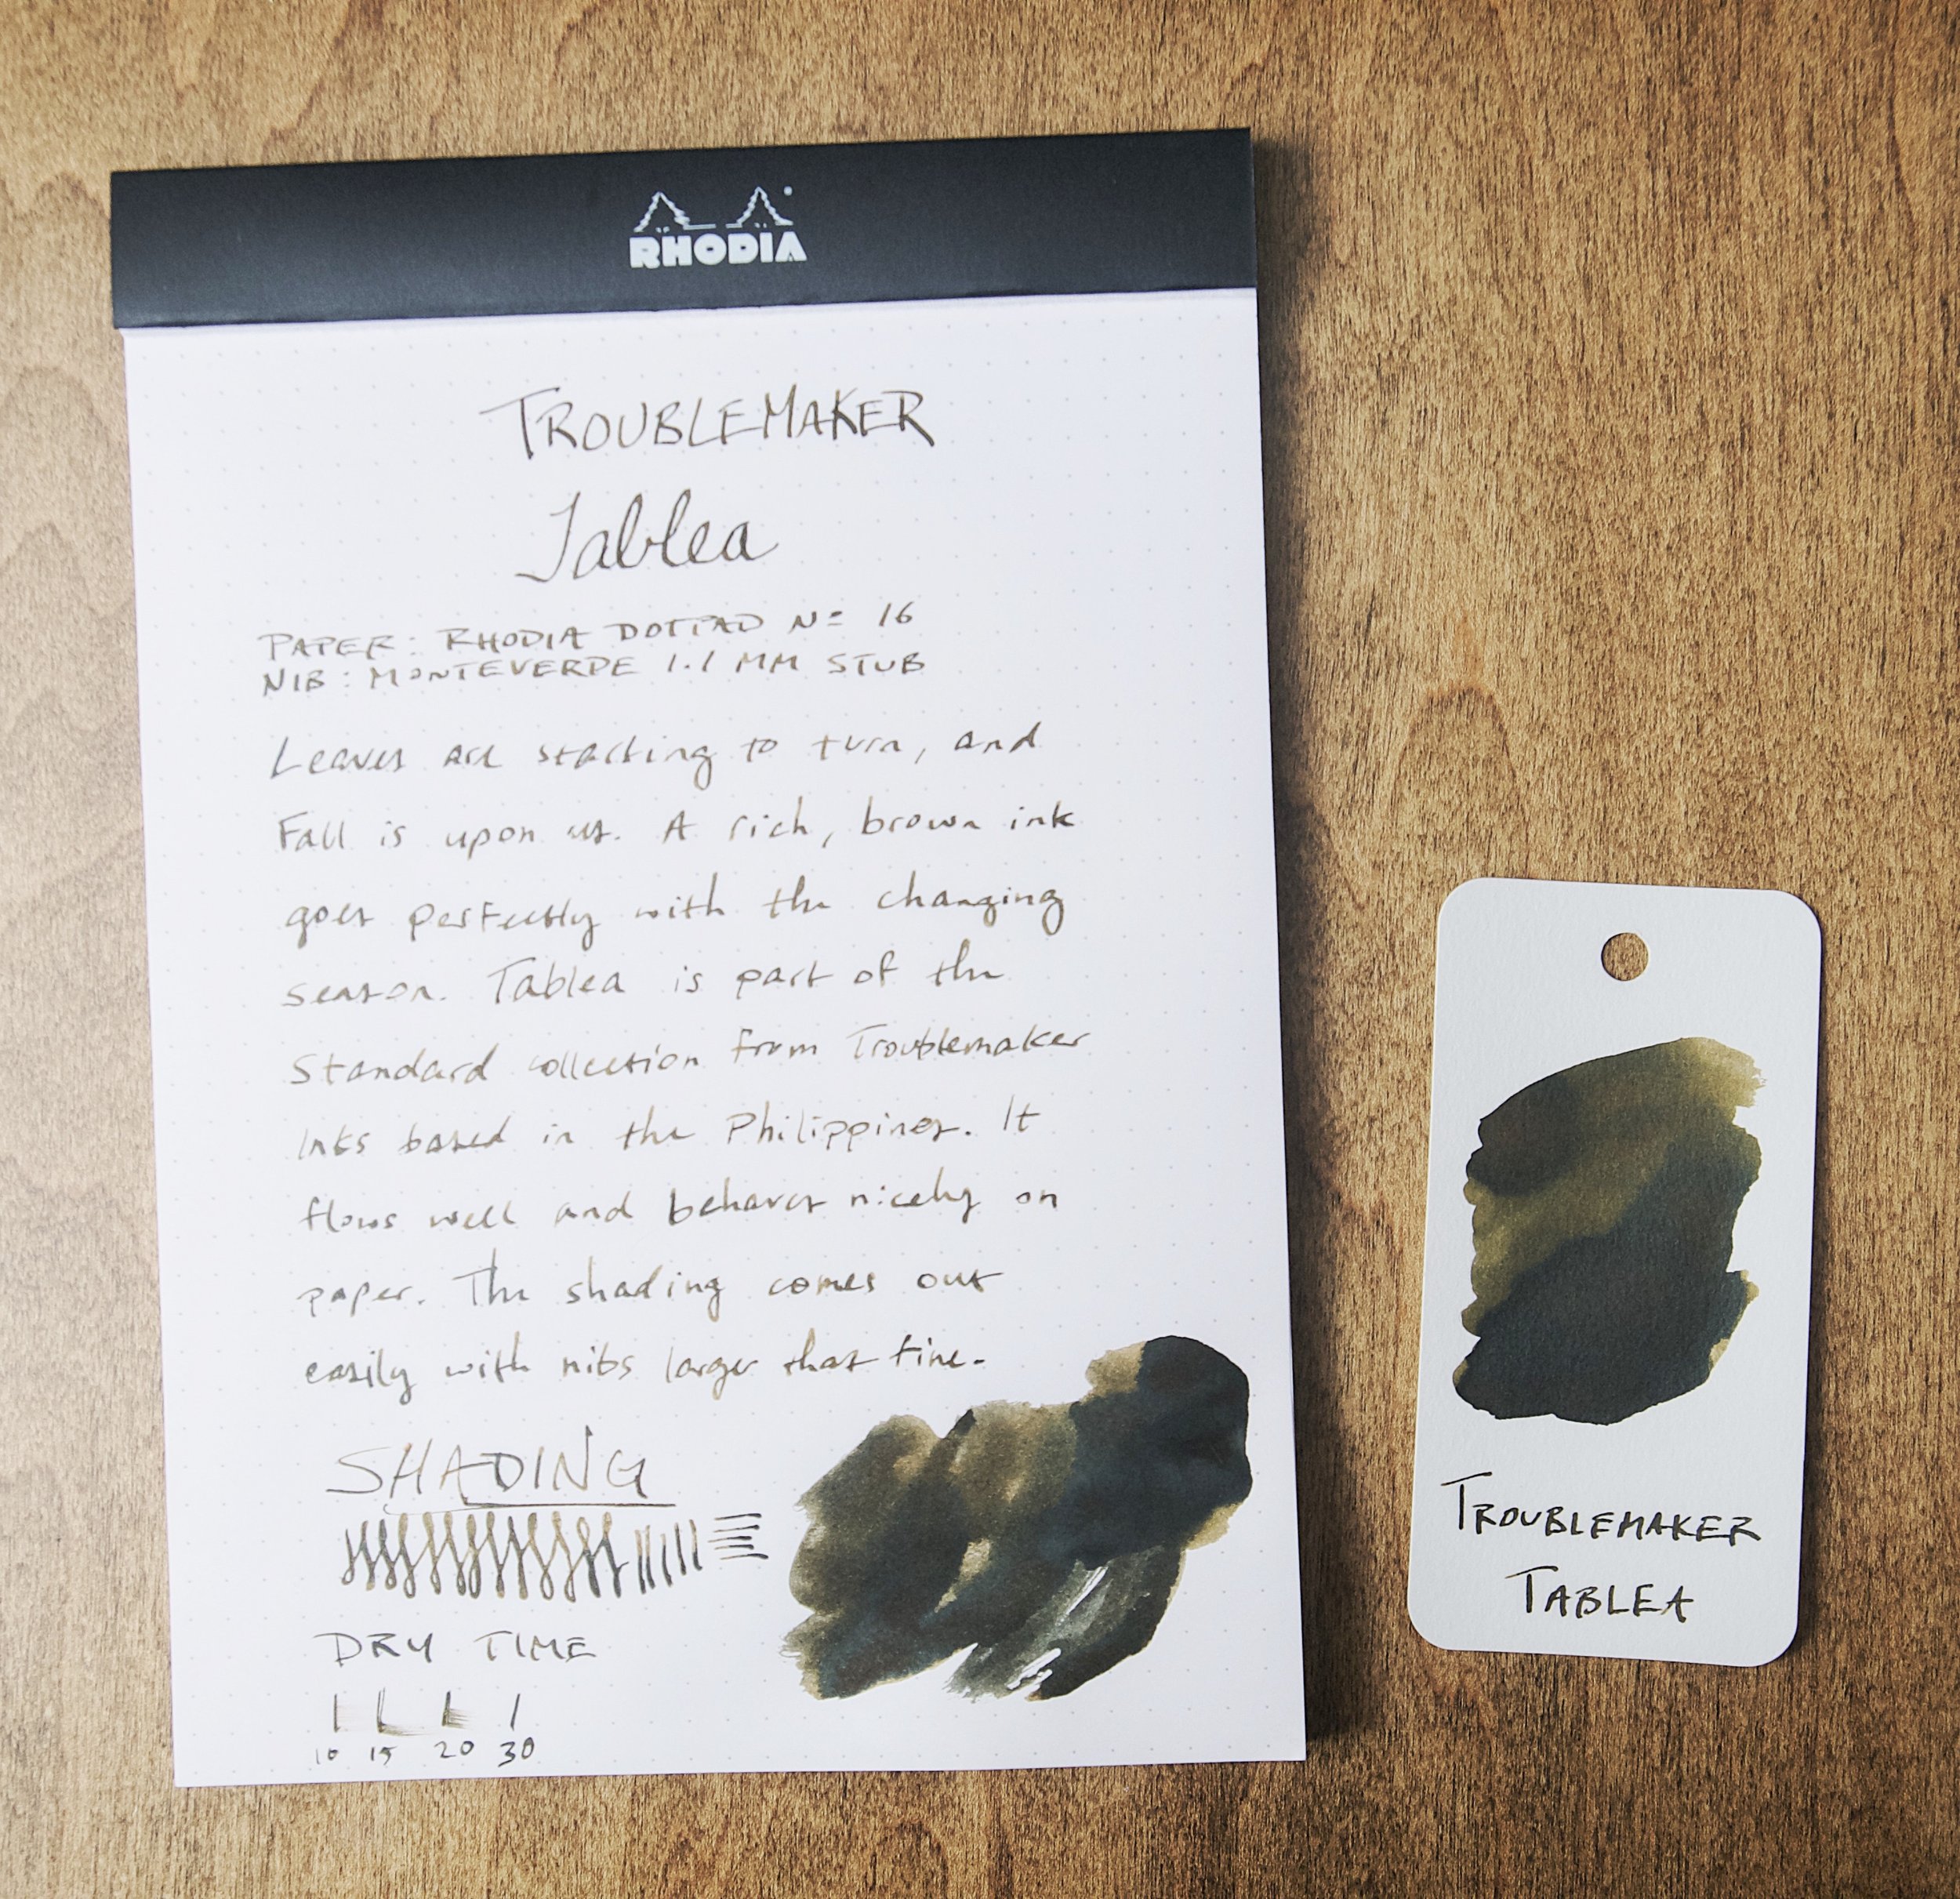 RHODIA
TROUBLEMAKER
Tablea
PAPER: RHODIA DOTPAD Nº 16
NIB: MONTEVERDE 1.1 MM STUB
Leaves are starting to turn, and
Fall is upon us. A rich, brown ink
goes perfectly with the changing
season. Tablea is part of the
Standard collection from Troublemaker
Inks based in the Philippines. It
flows well and behaves nicely on
paper. The shading comes out
easily with nibs larger than fine.
SHADING
DRY TIME
10 15 20 30
TROUBLEMAKER
TABLEA